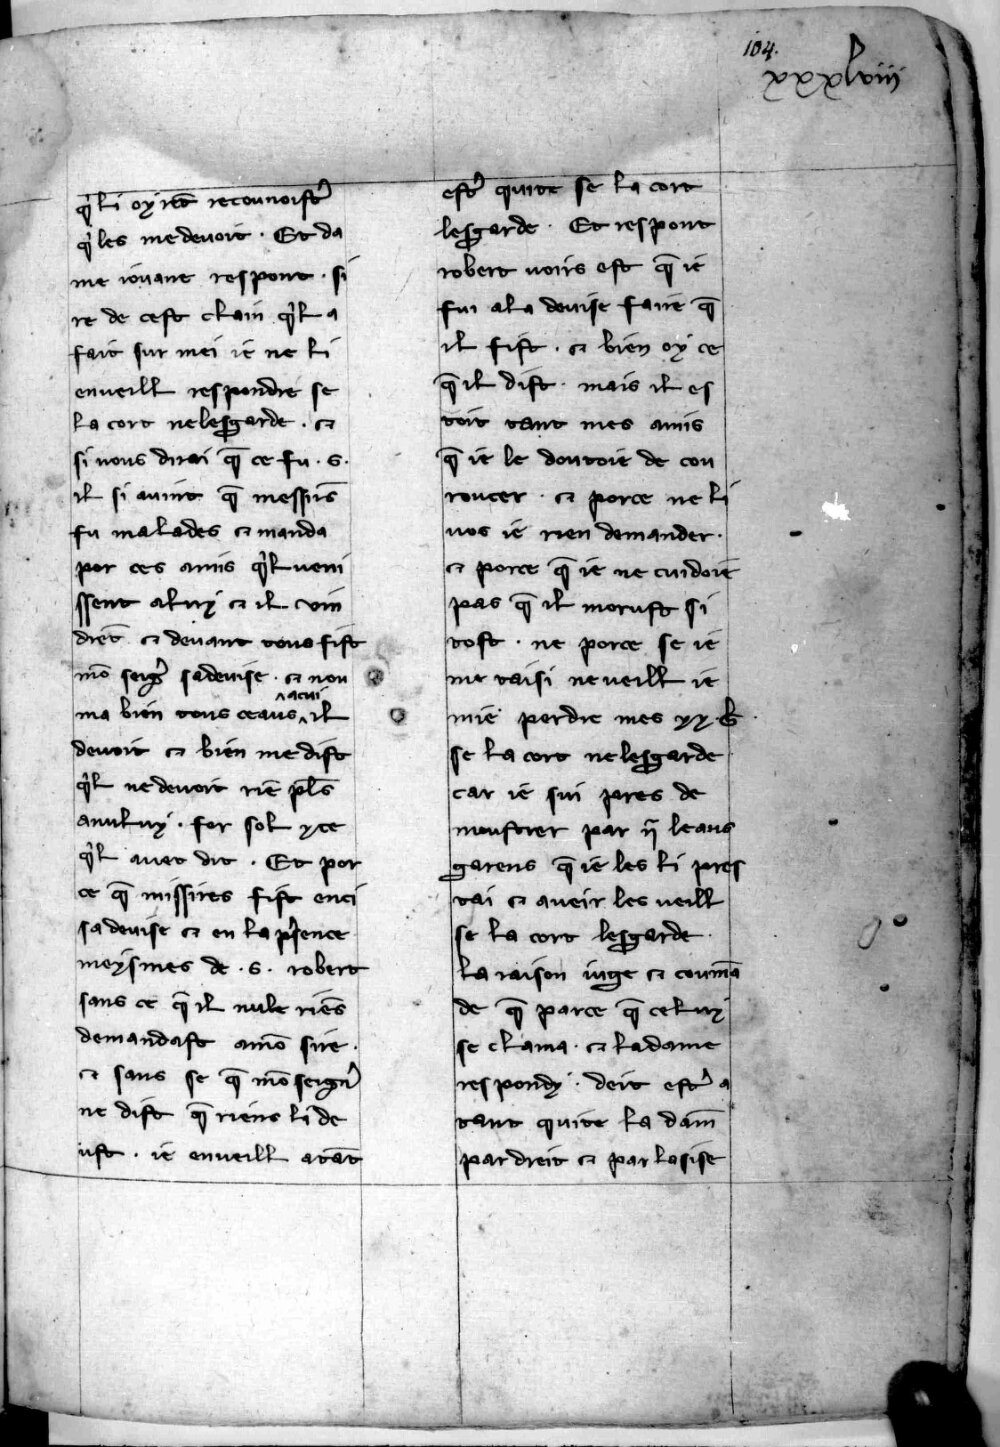 104.
xxxlviii
q̓ li oyrēt recounoistr̓
q̓ les me devoit . Et da
me iouane respont . si
re de cest clain q̓l a
fait sur mei ie ne li
enveill respondre se
la cort nelesgarde . ⁊
si vous dirai q̄ ce fu . s .
il si avint q̄ messirs̄
fu malades ⁊ manda
por ces amis q̓l veni
ssent a luy ⁊ il vin
drēt ⁊ devant tous fist
mō seigr̓ sa devise . ⁊ non
ma bien tous ceaus a cui il
devoit ⁊ bien me dist
q̓l ne devoit riē pl̄s
a nuluy . for sol yce
q̓l avet dit . Et por
ce q̄ missires fist enci
sa devise ⁊ en la p̓sence
meysmes de . s . robert
sans ce q̄ il nule riēs
demandast a mō sire .
⁊ sans se q̄ mō seignr̓
ne dist q̄ riens li de
ust . ie enveill atāt
estr̓ quite se la cort
lesgarde . Et respont
robert voirs est q̄ ie
fui a la devise faire q̄
il fist . ⁊ bien oy ce
q̄ il dist . mais il es
toit tant mes amis
q̄ ie le doutoie de cou
roucer . ⁊ porce ne li
vos ie rien demander .
⁊ porce q̄ ie ne cuidoie
pas q̄ il morust si
tost . ne porce se ie
me taisi ne veill ie
mie perdre mes xx . b̄ .
se la cort nelesgarde
car ie sui pres de
moustrer par iī leaus
garens q̄ ie les li pres
tai ⁊ aveir les veill
se la cort lesgarde .
La raison iuge ⁊ coumā
de q̄ parce q̄ celuy
se clama . ⁊ la dame
respondy . deit estr̓ a
tant quite la dam̄
par dreit ⁊ par lasise